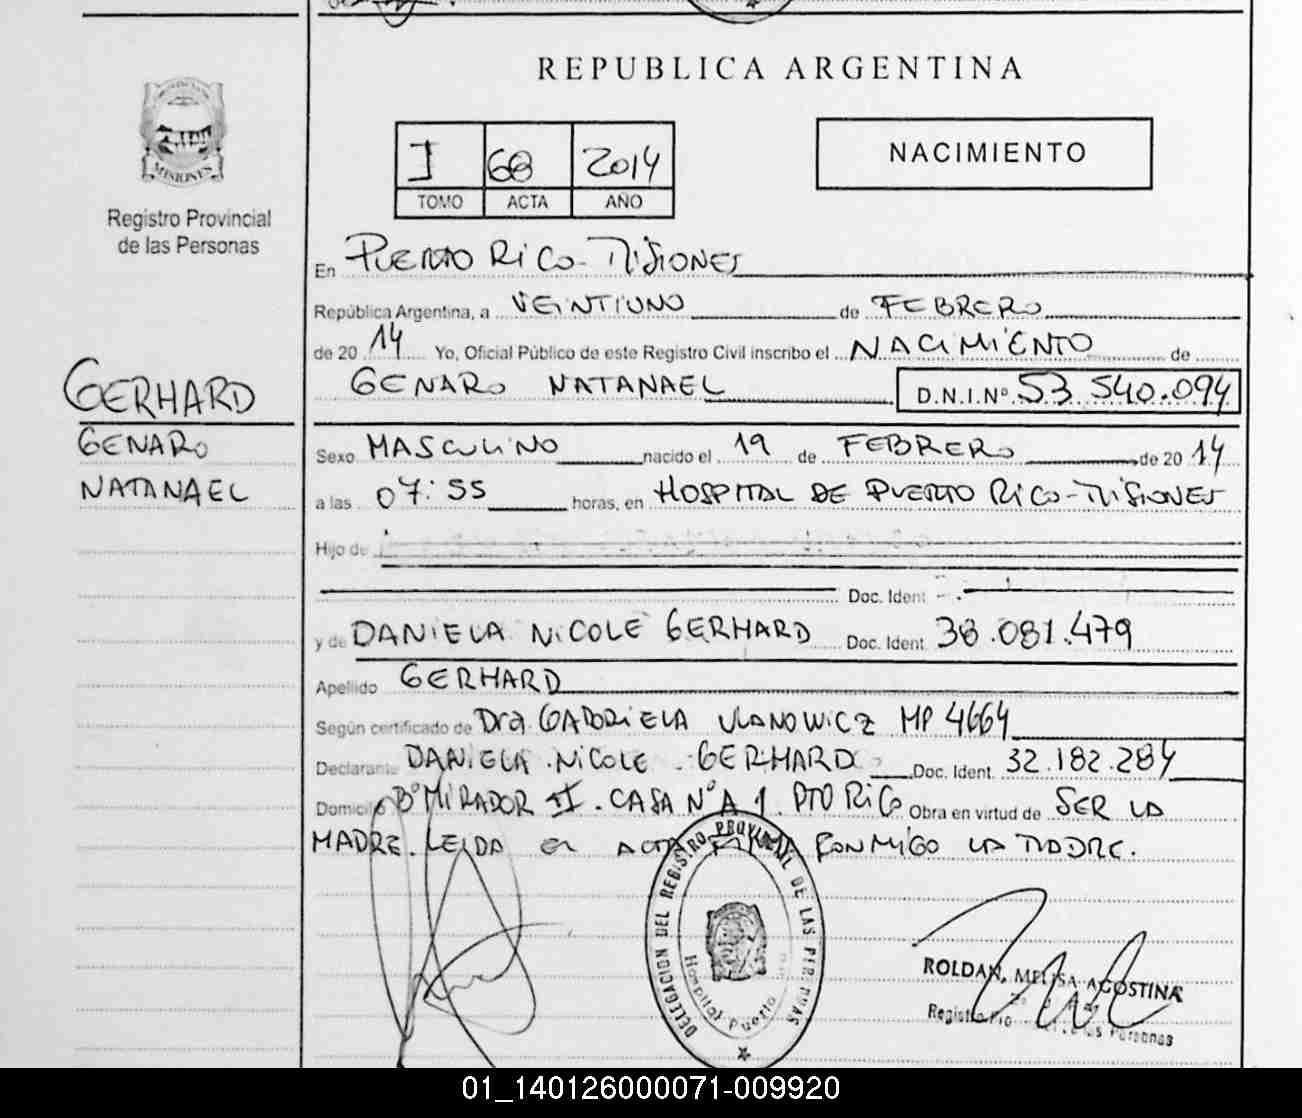 REPUBLICA ARGENTINA
MISIONES
Registro Provincial
de las Personas
I 68 2014
TOMO ACTA AÑO
NACIMIENTO
En PUERTO RICO - MISIONES
República Argentina, a VEINTIUNO de FEBRERO
de 20 14 Yo, Oficial Público de este Registro Civil inscribo el NACIMIENTO de
GENARO NATANAEL D.N.I.Nº 53.540.094
GERHARD
GENARO
NATANAEL
Sexo MASCULINO nacido el 19 de FEBRERO de 20 14
a las 07:55 horas, en HOSPITAL DE PUERTO RICO - MISIONES
Hijo de
Doc. Ident
y de DANIELA NICOLE GERHARD Doc. Ident. 38.081.479
Apellido GERHARD
Según certificado de Dra GABRIELA ULANOWICZ MP 4664
Declarante DANIELA NICOLE GERHARD Doc. Ident. 32.182.284
Domicilio Bº MIRADOR II. CASA Nº A 1. PTO RICO Obra en virtud de SER LA
MADRE. LEIDA EL ACTA FIRMA CONMIGO LA MADRE.
DELEGACION DEL REGISTRO PROVINCIAL DE LAS PERSONAS
Hospital Puerto
ROLDAN, MELISA AGOSTINA
Personas
01_140126000071-009920